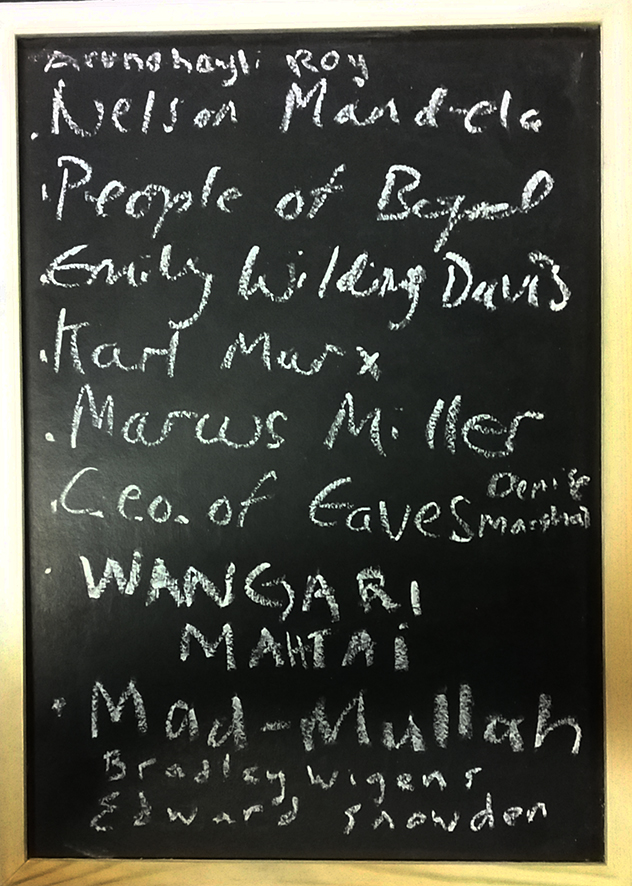 Arundhayti Roy
. Nelson Mandela
. People of Bopal
. Emily Wilding Davis
. Karl Marx
. Marcus Miller
. C.e.o. of Eaves Denise Marshal
. WANGARI
MAHTAI
. Mad-Mullah
Bradley Wigens
Edward Snowden